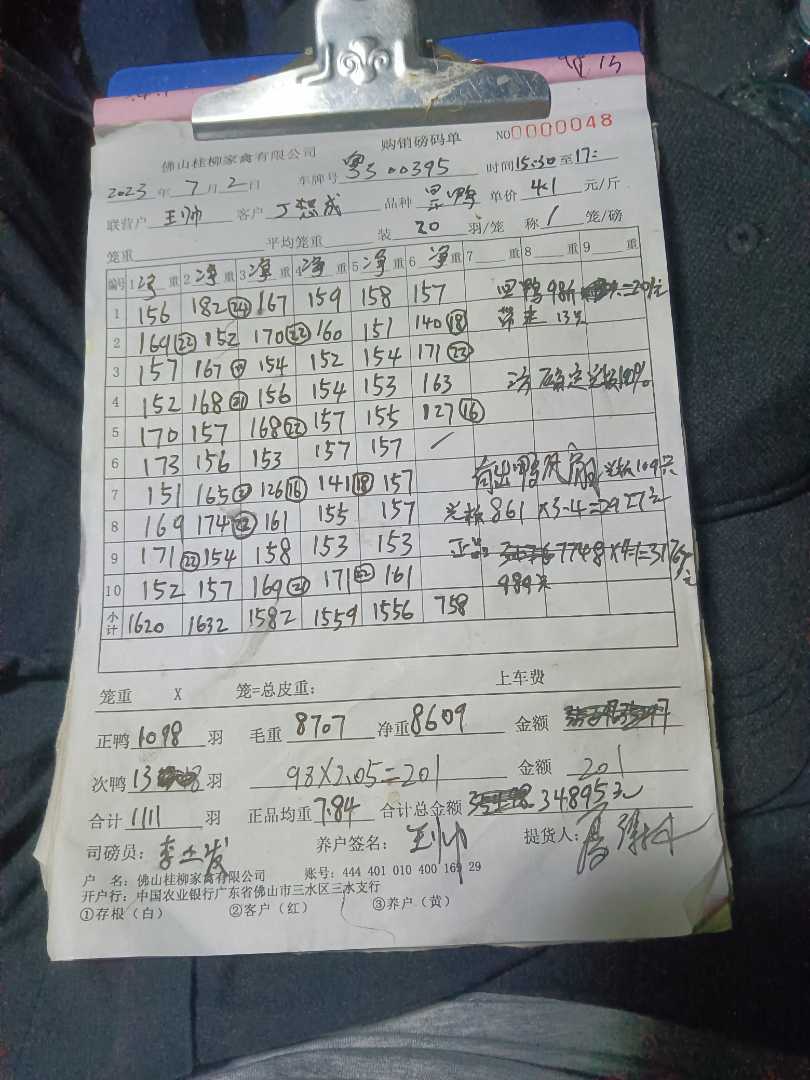 15
佛山桂柳家禽有限公司 购销磅码单 NO0000048
2023年7月2日 车牌号 粤 00395 时间15:30至17:
联营户 王帅 客户 丁想成 品种 鸭 单价 4.1 元/斤
笼重 平均笼重 装 20 羽/笼 称 1 笼/磅
编号 1净重 2净重 3净重 4净重 5净重 6净重 7重 8重 9重
1 156 182(24) 167 159 158 157 鸭98斤 =201元
2 169(22) 152 170(22) 160 151 140(18) 带走 13只
3 157 167 154 152 154 171(22)
4 152 168(21) 156 154 153 163 确定 100%
5 170 157 168(22) 157 155 127(16)
6 173 156 153 157 157 /
7 151 165 126(16) 141(18) 157 109只
8 169 174(22) 161 155 157 861×3.4=2927元
9 171(22) 154 158 153 153 正品 7748×4.1=31767元
10 152 157 169(21) 171(22) 161 989只
小计 1620 1632 1582 1559 1556 758
笼重 X 笼=总皮重: 上车费
正鸭 1098 羽 毛重 8707 净重 8609 金额
次鸭 13 羽 98×2.05=201 金额 201
合计 1111 羽 正品均重 7.84 合计总金额 34895元
司磅员: 李 发 养户签名: 王帅 提货人:
户 名: 佛山桂柳家禽有限公司 账号: 444 401 010 400 169 29
开户行: 中国农业银行广东省佛山市三水区三水支行
①存根(白) ②客户(红) ③养户(黄)